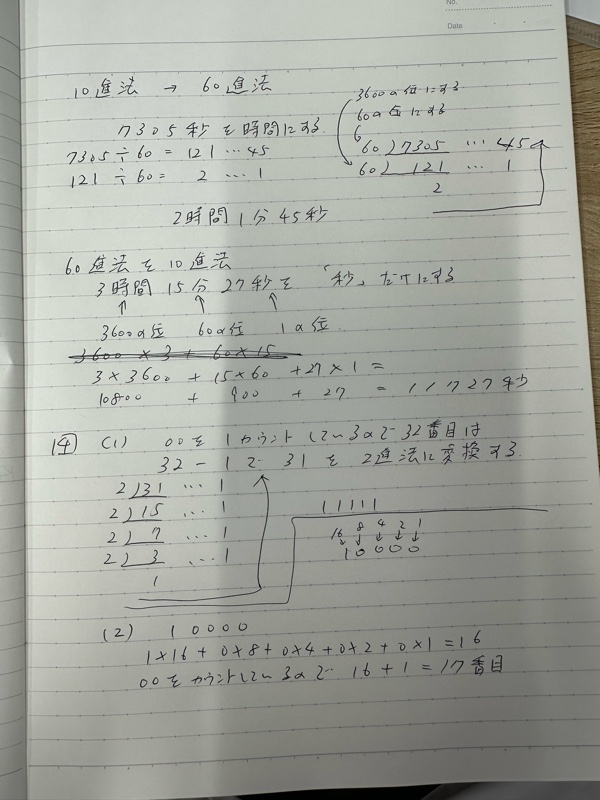 No.
Date
10進法 → 60進法
7305秒を時間にする
7305÷60= 121 … 45
121 ÷60= 2 … 1
3600の位にする
60の位にする
6
60)7305 … 45
60) 121 … 1
2
2時間1分45秒
60進法を10進法
3時間 15分 27秒を 「秒」だけにする
↑ ↑ ↑
3600の位 60の位 1の位
3600×3+60×15
3×3600 + 15×60 +27×1 =
10800 + 900 + 27 = 11727秒
14 (1) 00を1カウントしているので32番目は
32-1で31を2進法に変換する
2)31 … 1
2)15 … 1
2)7 … 1
2)3 … 1
1
11111
16 8 4 2 1
↓ ↓ ↓ ↓ ↓
1 0 0 0 0
(2) 10000
1×16+0×8+0×4+0×2+0×1=16
00をカウントしているので 16+1=17番目